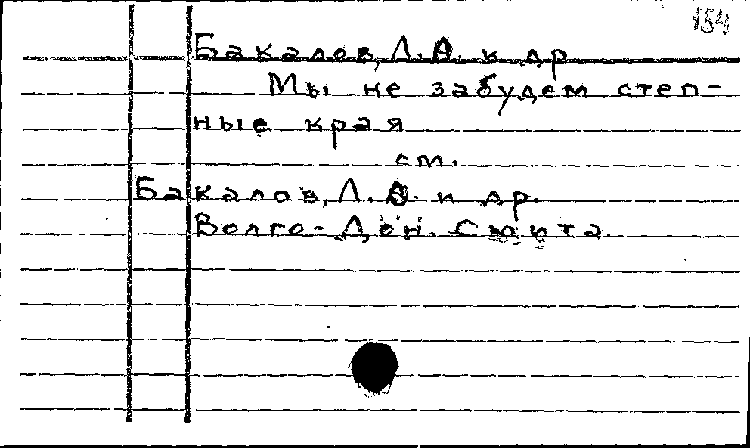 154
Бакалов, Л.А. и др
Мы не забудем степ-
ные края
см.
Бакалов, Л.А. и др.
Волго-Дон. Сюита.